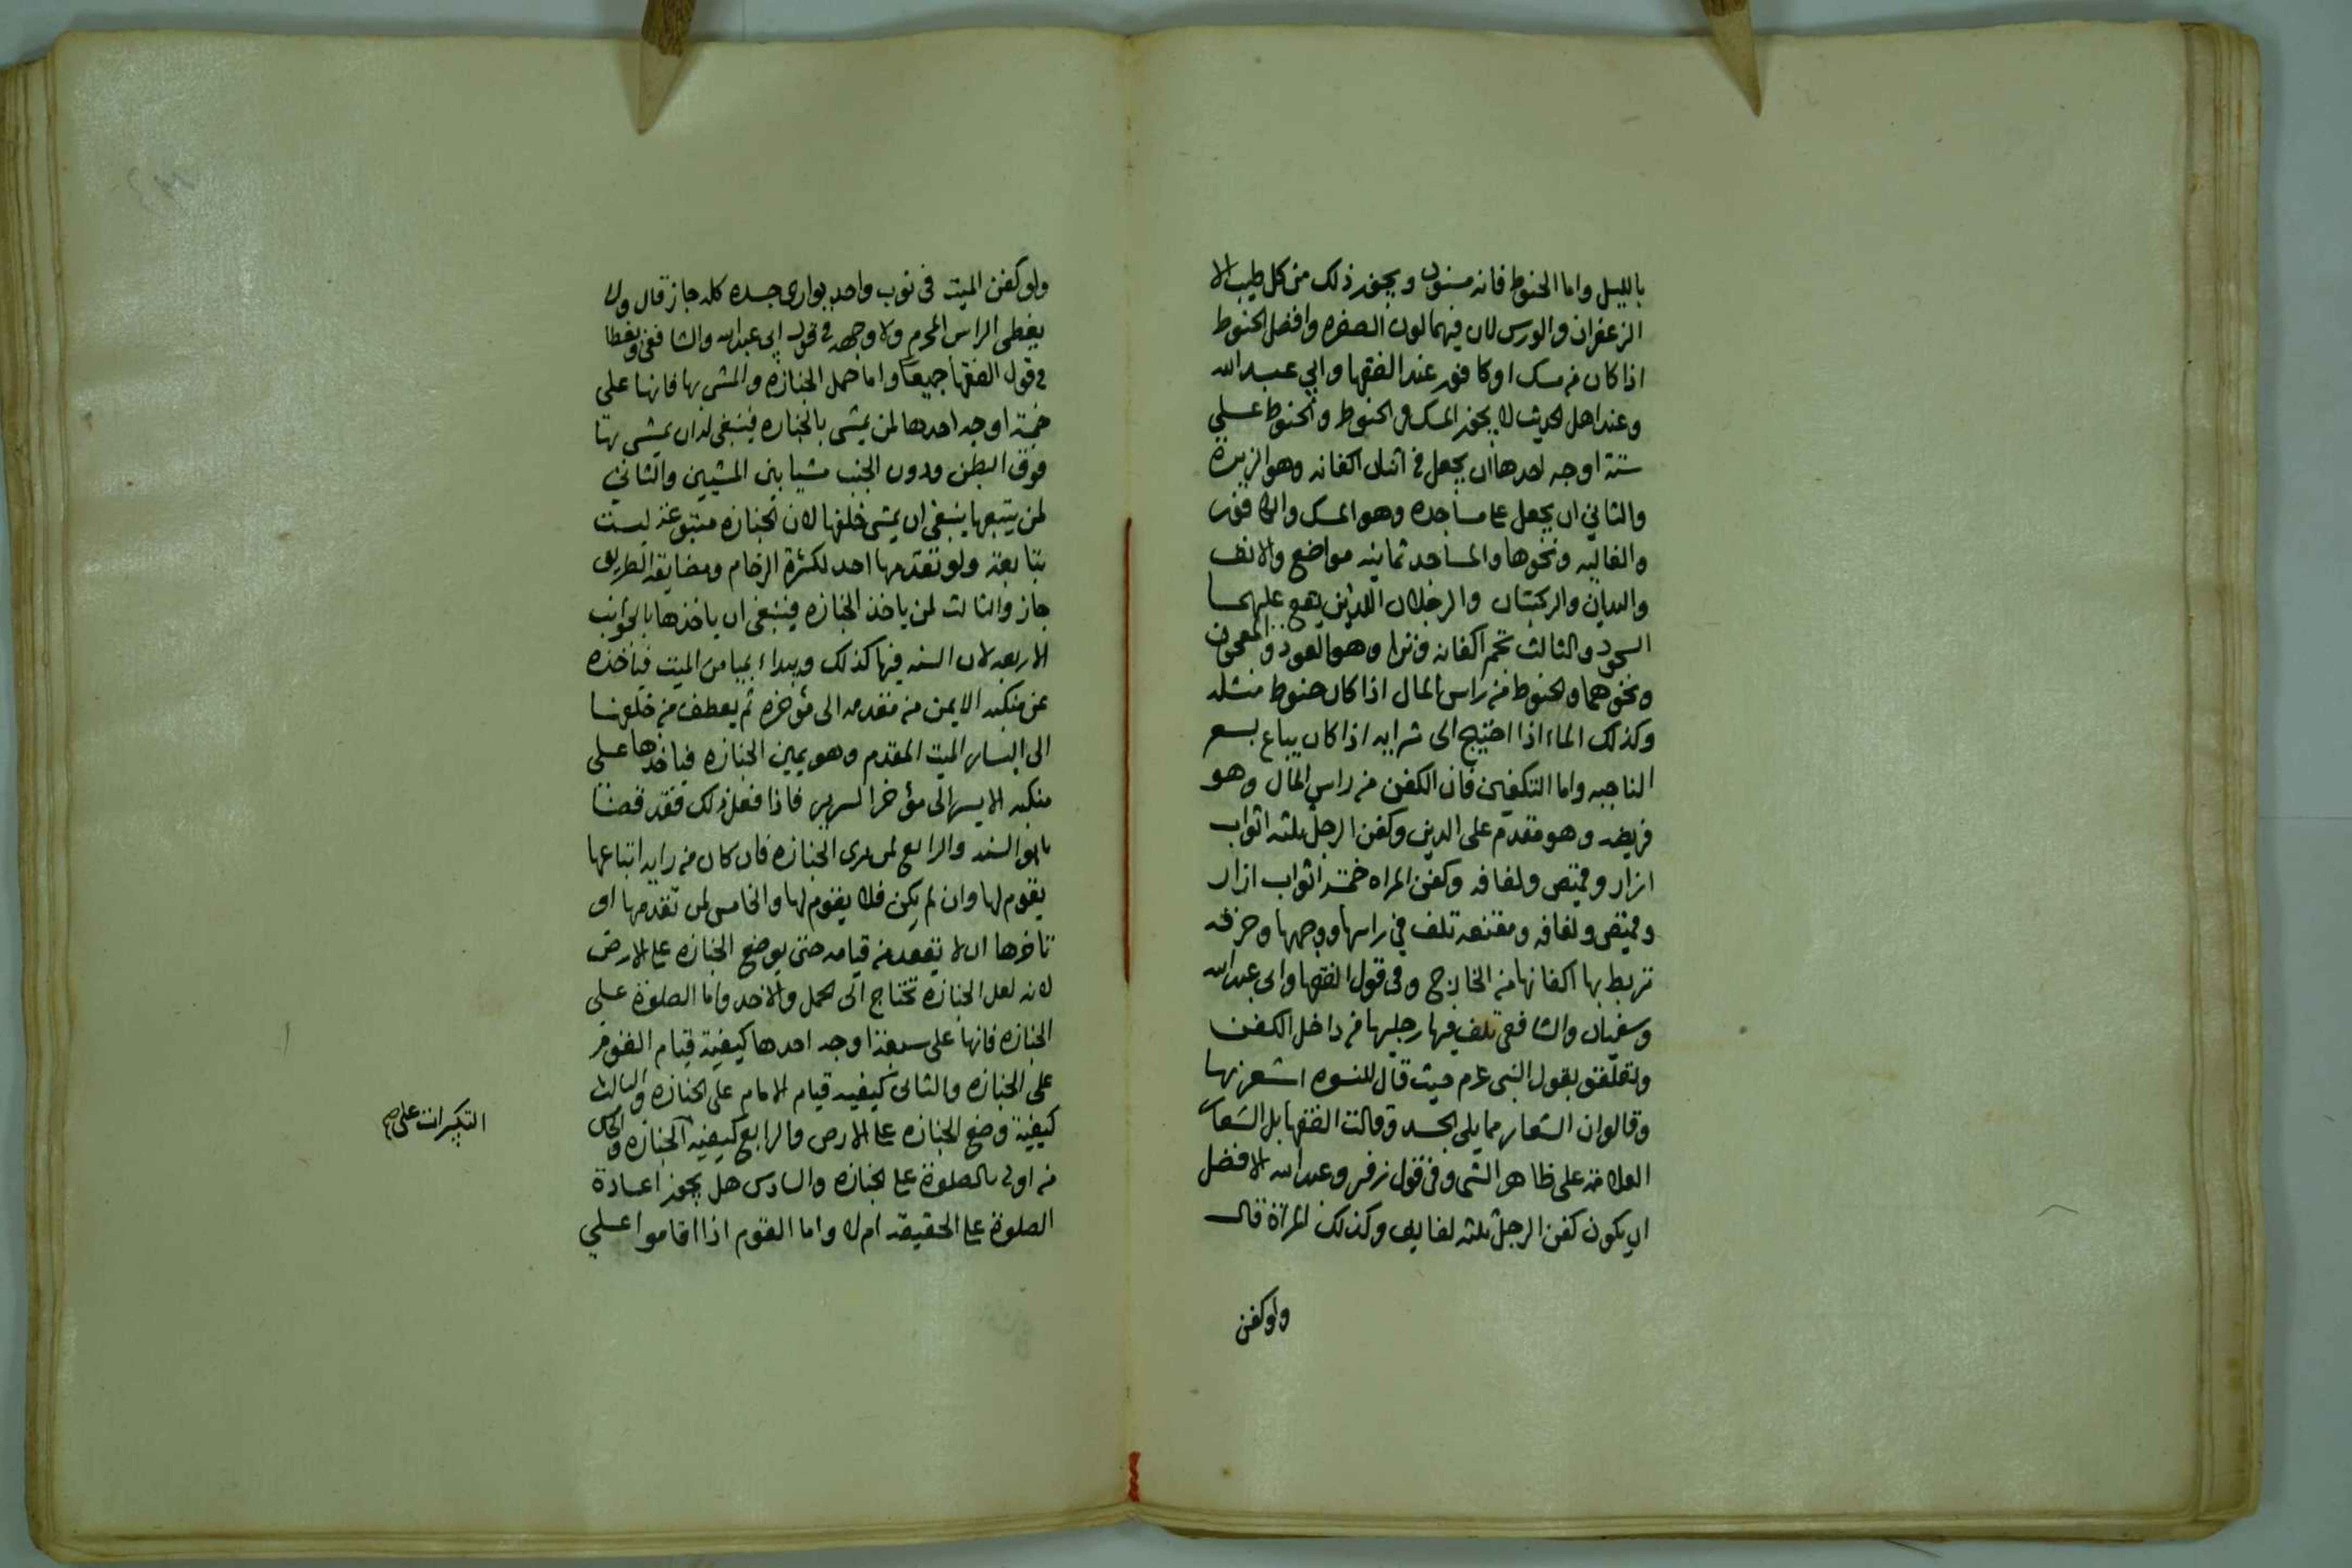 بالليل واما الحنوط فانه مسنون ويجوز ذلك من كل طيب الا
الزعفران والورس لان فيهما لون الصفره وافضل الحنوط
اذا كان من مسك او كافور عند الفقها وابي عبد الله
وعند اهل الحديث لا يجوز المسك في الحنوط والحنوط على
ستة اوجه احدها ان يجعل في اثنان اكفانه وهو الزيرة
والثاني ان يجعل على مساجده وهو المسك والكافور
والغاليه ونحوها والمساجد ثمانيه مواضع والانف
واليدان والركبتان والرجلان اللذين يقع عليهما
السجود والثالث تجمر اكفانه وترا وهو العود والمعجون
ونحوهما والحنوط من راس المال اذا كان حنوط مثله
وكذلك الماء اذا احتيج الى شرايه اذا كان يباع بسعر
الناحيه واما التكفين فان الكفن من راس المال وهو
فريضه وهو مقدم على الدين وكفن الرجل ثلثه اثواب
ازار وقميص ولفافه وكفن المراه خمسه اثواب ازار
وقميص ولفافه ومقنعه تلف في راسها ووجهها وخرقه
تربط بها اكفانها من الخارج وفي قول الفقها وابي عبد الله
وسفيان والشافعي تلف فيها رجليها من داخل الكفن
وتعلقو بقول النبي عم حيث قال للنسوه اشعرنها
وقالوان الشعار مما يلي الجسد وقالت الفقها بل الشعار
العلامة على ظاهر الشى وفي قول زفر وعبد الله الافضل
ان يكون كفن الرجل ثلثه لفايف وكذلك المرآة قال
ولو كفن
ولو كفن الميت في ثوب واحد يوارى جسده كله جاز قال ولا
يغطى الراس المحرم ولا وجهه في قول ابي عبد الله والشافعي ويغطا
في قول الفقها جميعا واما حمل الجنازه والمشى بها فانها على
خمسة اوجه احدها لمن يمشى بالجنازه فينبغي له ان يمشى بها
فوق البطن ودون الجنب مشيا بين المشيين والثاني
لمن يتبعها ينبغى ان يمشى خلفها لان الجنازه متبوعة ليست
بتابعة ولو تقدمها احد لكثرة الزحام ومضايقة الطريق
جاز والثالث لمن ياخذ الجنازه فينبغى ان ياخذها بالجوانب
الاربعه لان السنه فيها كذلك ويبداء بميامن الميت فياخذه
عن منكبه الايمن من مقدمه الى مؤخره ثم يعطف من خلفها
الى اليسار الميت المقدم وهو يمين الجنازه فياخذها على
منكبه الايسر الى مؤخر السرير فاذا فعل ذلك فقد قضا
السنه والرابع لمن يرى الجنازه فان كان من رايه اتباعها
يقوم لها وان لم يكن فلا يقوم لها والخامس لمن تقدمها او
تاخرها ان لا يقعد من قيامه حتى يوضع الجنازه على الارض
لانه لعل الجنازه تحتاج الى الحمل والاخذ واما الصلوة على
الجنازه فانها على سبعة اوجه احدها كيفية قيام القوم
على الجنازه والثانى كيفيه قيام الامام على الجنازه والثالث
كيفية وضع الجنازه على الارض والرابع كيفيه الجنازه والخامس
من اولى بالصلوة على الجنازه والسادس هل يجوز اعادة
الصلوة على الحقيقه ام لا واما القوم اذا اقاموا على
التكبيرات على صح